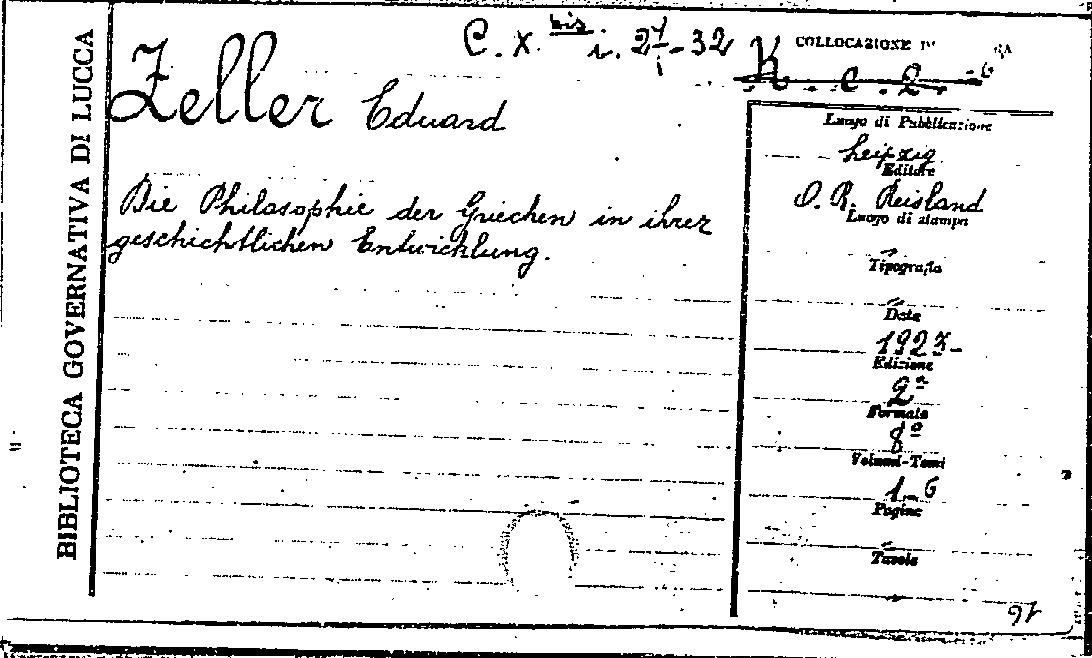 BIBLIOTECA GOVERNATIVA DI LUCCA
C. X. bis
COLLOCAZIONE
Zeller Eduard
Die Philosophie der Griechen in ihrer
geschichtlichen Entwicklung.
Luogo di Pubblicazione
Leipzig
Editore
O. R. Reisland
Luogo di stampa
Tipografia
Data
1923-
Edizione
2ª
Formato
8º
Volumi-Tomi
1-6
Pagine
Tavole